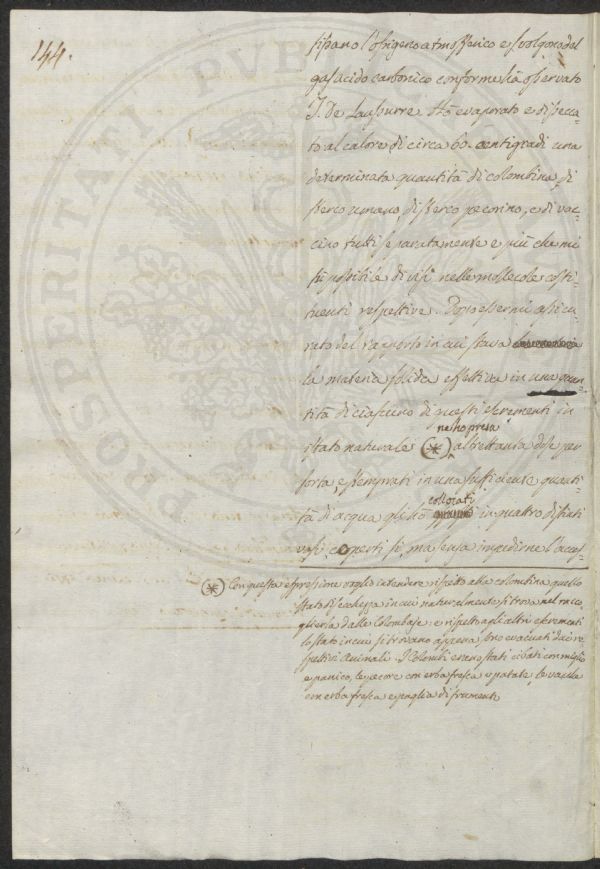 144.
sipano l'ossigeno atmosferico e svolgono del
gas acido carbonico conforme hà osservato
T. De Saussurre. Hò evaporato e disecca-
to al calore di circa 60. centigradi una
determinata quantità di colombina, di
sterco umano, di sterco pecorino, e di vac-
cino tutti separatamente e più che mi
fù possibile divisi nelle mollecole costi-
tuenti respettive. Dopo essermi assicu-
rato del rapporto in cui stava
la materia solida effettiva in una quan-
tità di ciascuno di questi escrementi in
stato naturale (*) ne hò presa altrettanta dose per
sorta, e stemprati in una sufficiente quanti-
tà di acqua gli hò collocati in quattro distinti
vasi coperti sì, ma senza impedirne l'acces-
(*) Con questa espressione voglio intendere rispetto alla colombina quello
stato di secchezza in cui naturalmente si trova nel racco-
glierla dalle Colombaje: e rispetto agli altri escrementi
lo stato in cui si trovano appena sono evacuati dai re-
spettivi animali. I Colombi erano stati cibati con miglio
e panico, le pecore con erba fresca e patate, le vacche
con erba fresca e paglia di frumento
PROSPERITATI PUBLICAE